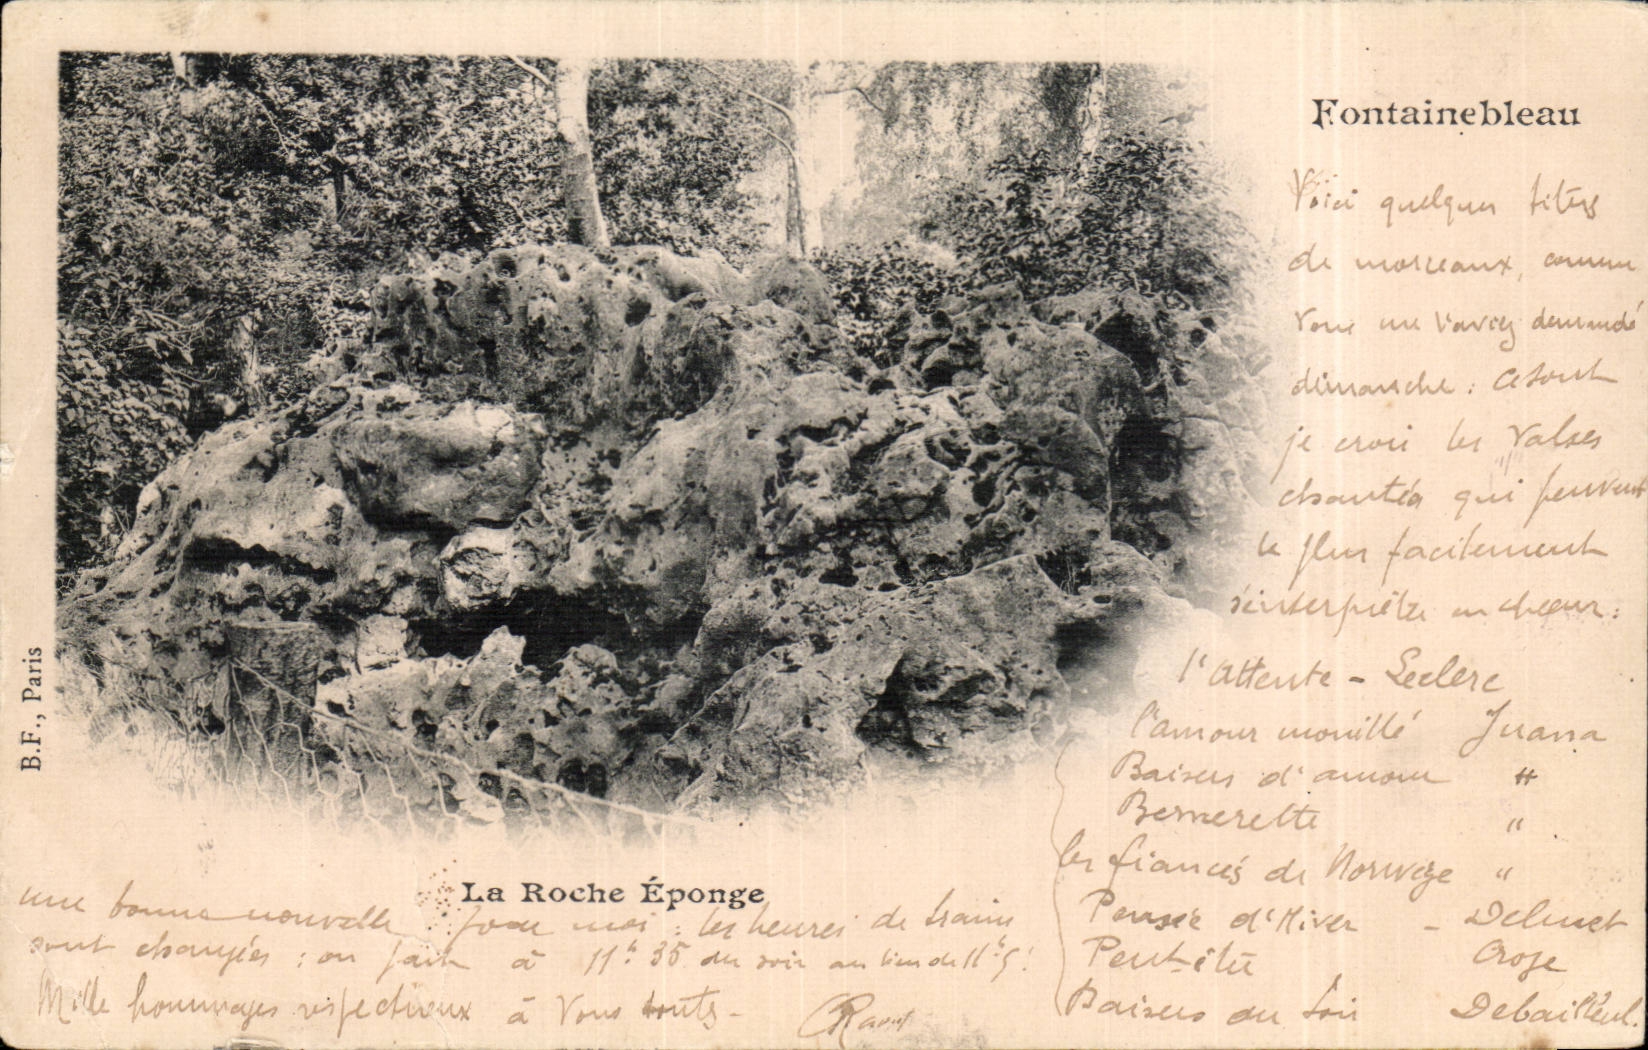 Fontainebleau
Voici quelques titres
de morceaux, comme
vous me l'aviez demandé
dimanche : ce sont
je crois les Valses
chantées qui peuvent
le plus facilement
s'interpréter en chœur :
l'Attente - Leclerc
l'amour mouillé Juana
Baisers d'amour "
Bernerette "
les fiancés de Norvège "
Pensée d'Hiver - Delmet
Peut-être Croze
Baisers du Soir Debailleul.
La Roche Éponge
une bonne nouvelle pour moi : les heures de trains
sont changées : on part à 11h 35 du soir au lieu de 11h 5!
Mille hommages respectueux à Vous toutes -
B.F., Paris